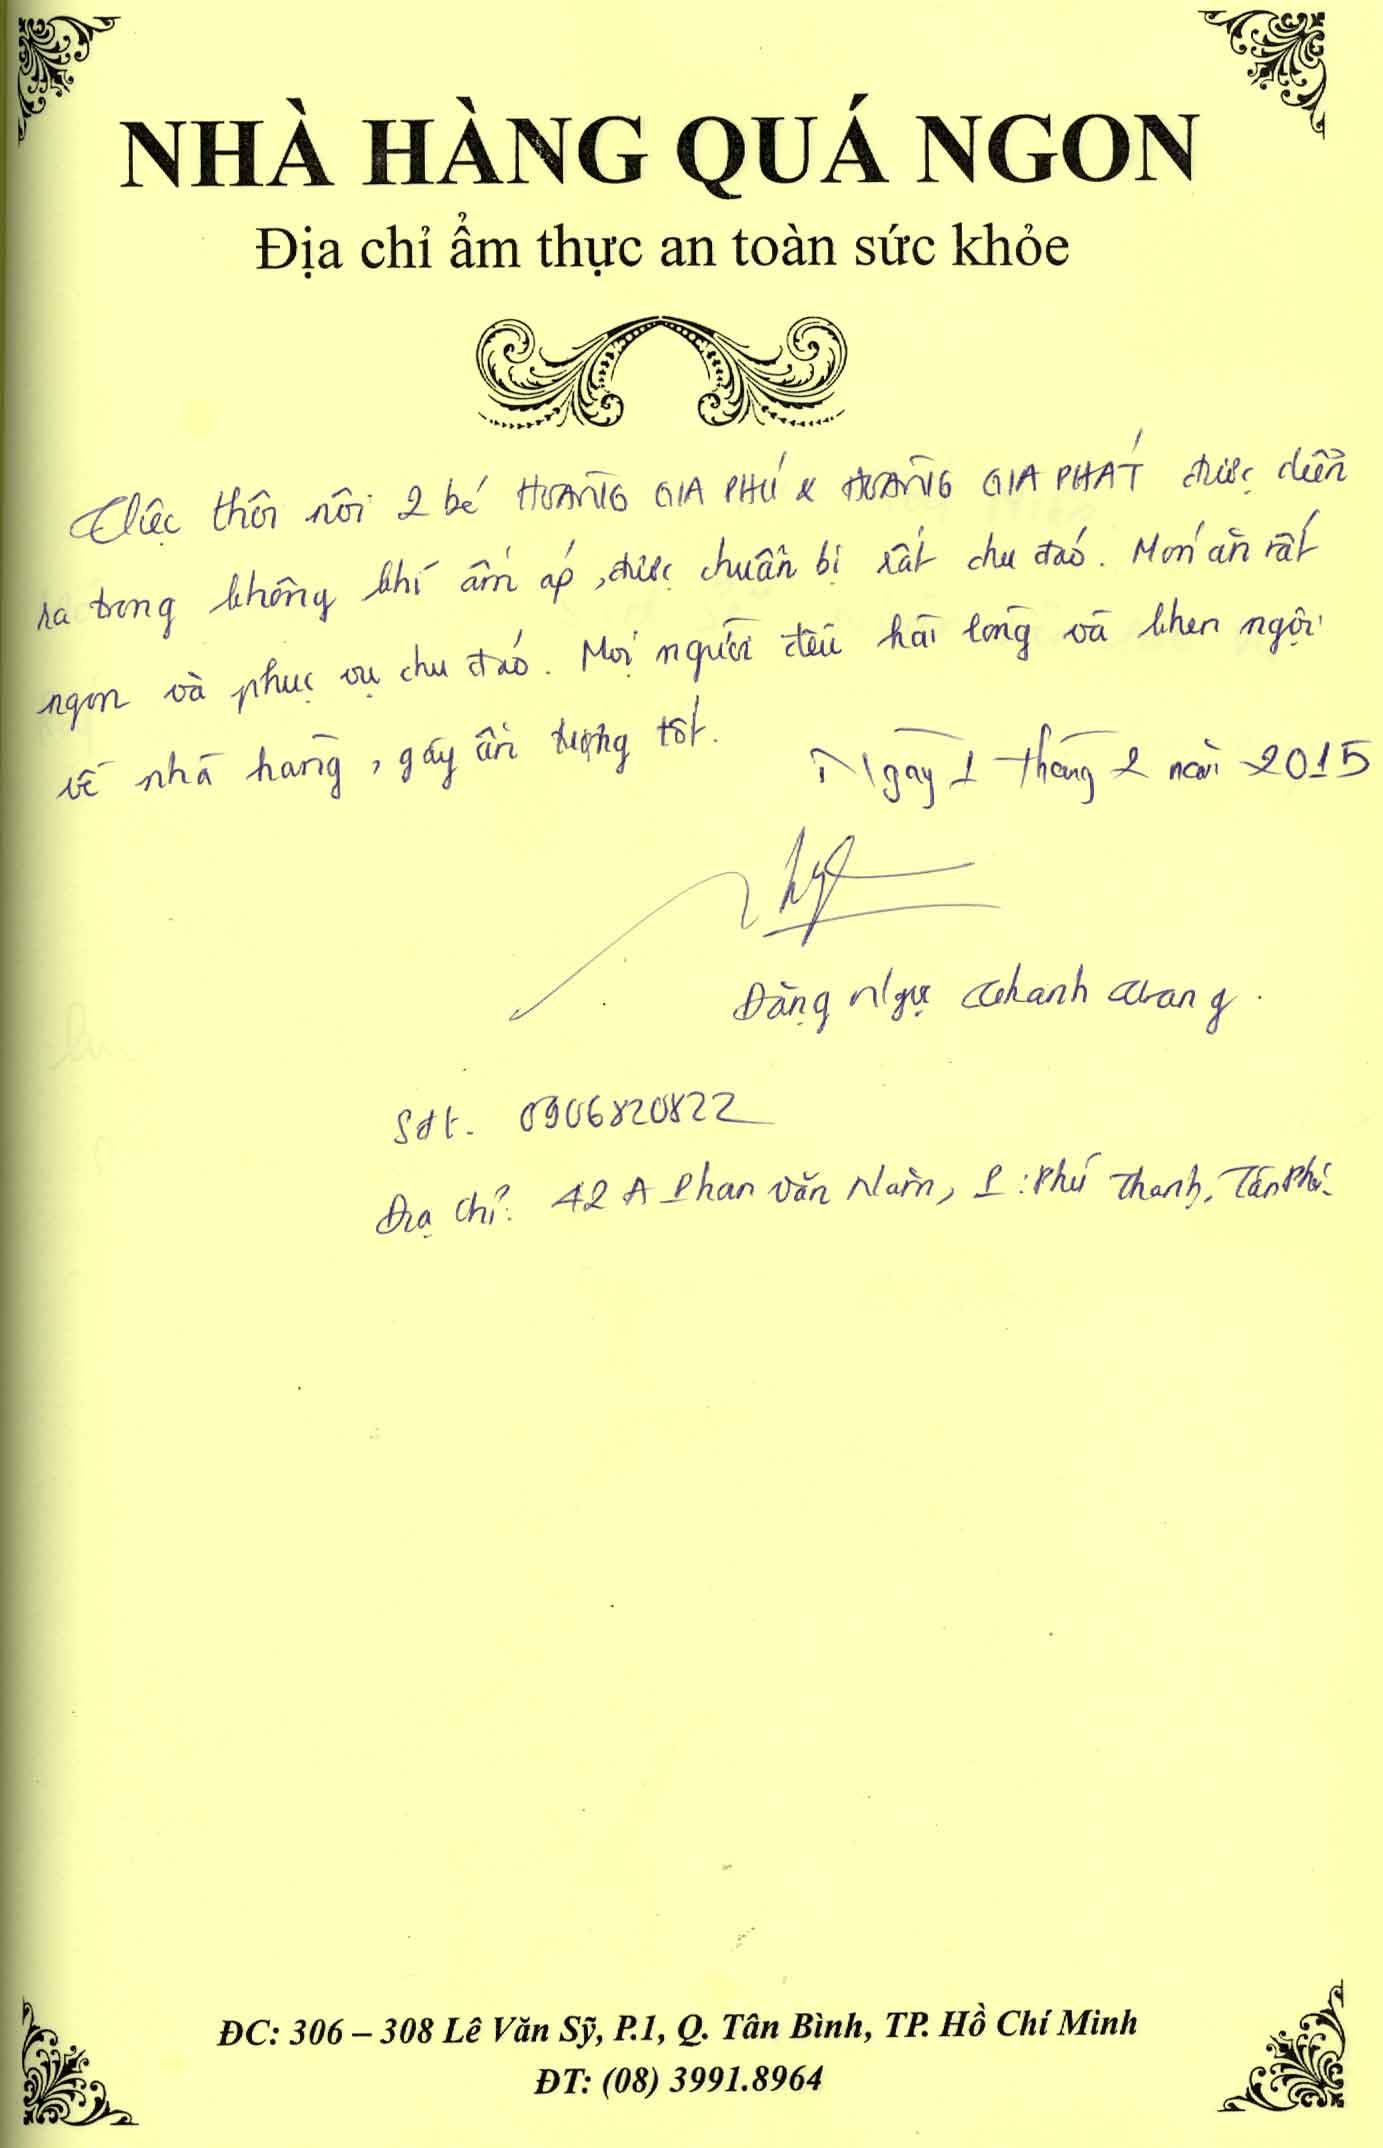 NHÀ HÀNG QUÁ NGON
Địa chỉ ẩm thực an toàn sức khỏe
Tiệc thôi nôi 2 bé HOÀNG GIA PHÚ & HOÀNG GIA PHÁT được diễn
ra trong không khí ấm áp, được chuẩn bị rất chu đáo. Món ăn rất
ngon và phục vụ chu đáo. Mọi người đều hài lòng và khen ngợi
về nhà hàng, gây ấn tượng tốt.
Ngày 1 tháng 2 năm 2015
Đặng Ngự Thanh Trang.
Sđt. 0906820822
Địa chỉ: 42A Phan Văn Năm, P: Phú Thạnh, Tân Phú.
ĐC: 306 – 308 Lê Văn Sỹ, P.1, Q. Tân Bình, TP. Hồ Chí Minh
ĐT: (08) 3991.8964